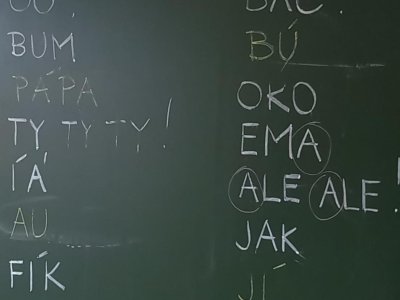 BUM
PÁPA
TY TY TY!
ÍÁ
AU
FÍK
BÚ
OKO
EMA
ALE ALE!
JAK
JÍ